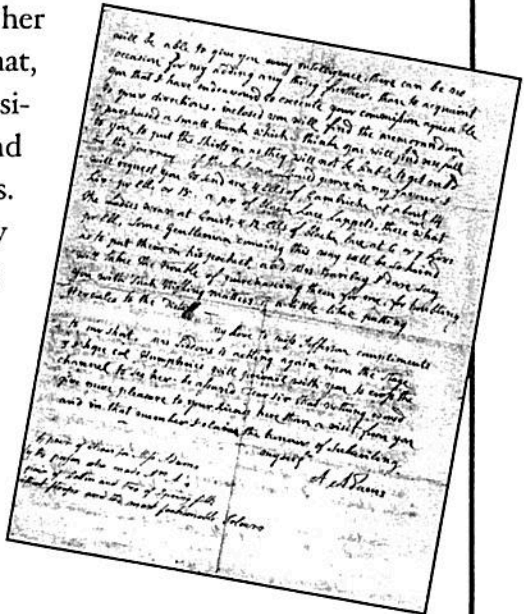 her
hat,
si-
nd
s.
y
will be able to give you every intelligence, there can be no
occasion for my adding any thing further, than to acquaint
you that I have endeavourd to execute your commission agreeable
to your directions, inclosed you will find the memorandum
I purchased a small trunk which I think you will find usefull
to you, to put the shirts in as they will not be liable to get rubd
on the journey. If the balance should prove in my favour I
will request you to send me 4 Ells of Cambrick at about 14
Livres pr Ell or 15. a pr of black Lace Lappets, these is what
the Ladies wear at Court, & 12 Ells of black lace at 6 or 7 Livres
pr Ell, Some Gentleman comeing this way will be so kind
as to put them in his pocket, and Mrs Barclay I dare say
will take the trouble of purchaseing them for me, for troubling
you with such trifling matters is a little like putting
Hercules to the Distaff.
My Love to miss Jefferson compliments
to mr short. mrs Siddons is acting again upon the stage
& I hope col. Humphries will prevail with you to cross the
channel to see her. be assured dear sir that nothing would
give more pleasure to your Friends here than a visit from you
and in that number I claim the honour of subscribing
myself
A Adams
4 pair of shoes for miss Adams
by the person who made mrs A's
pair of Satin and two of Spring silk
without straps and the most fashionable Colours